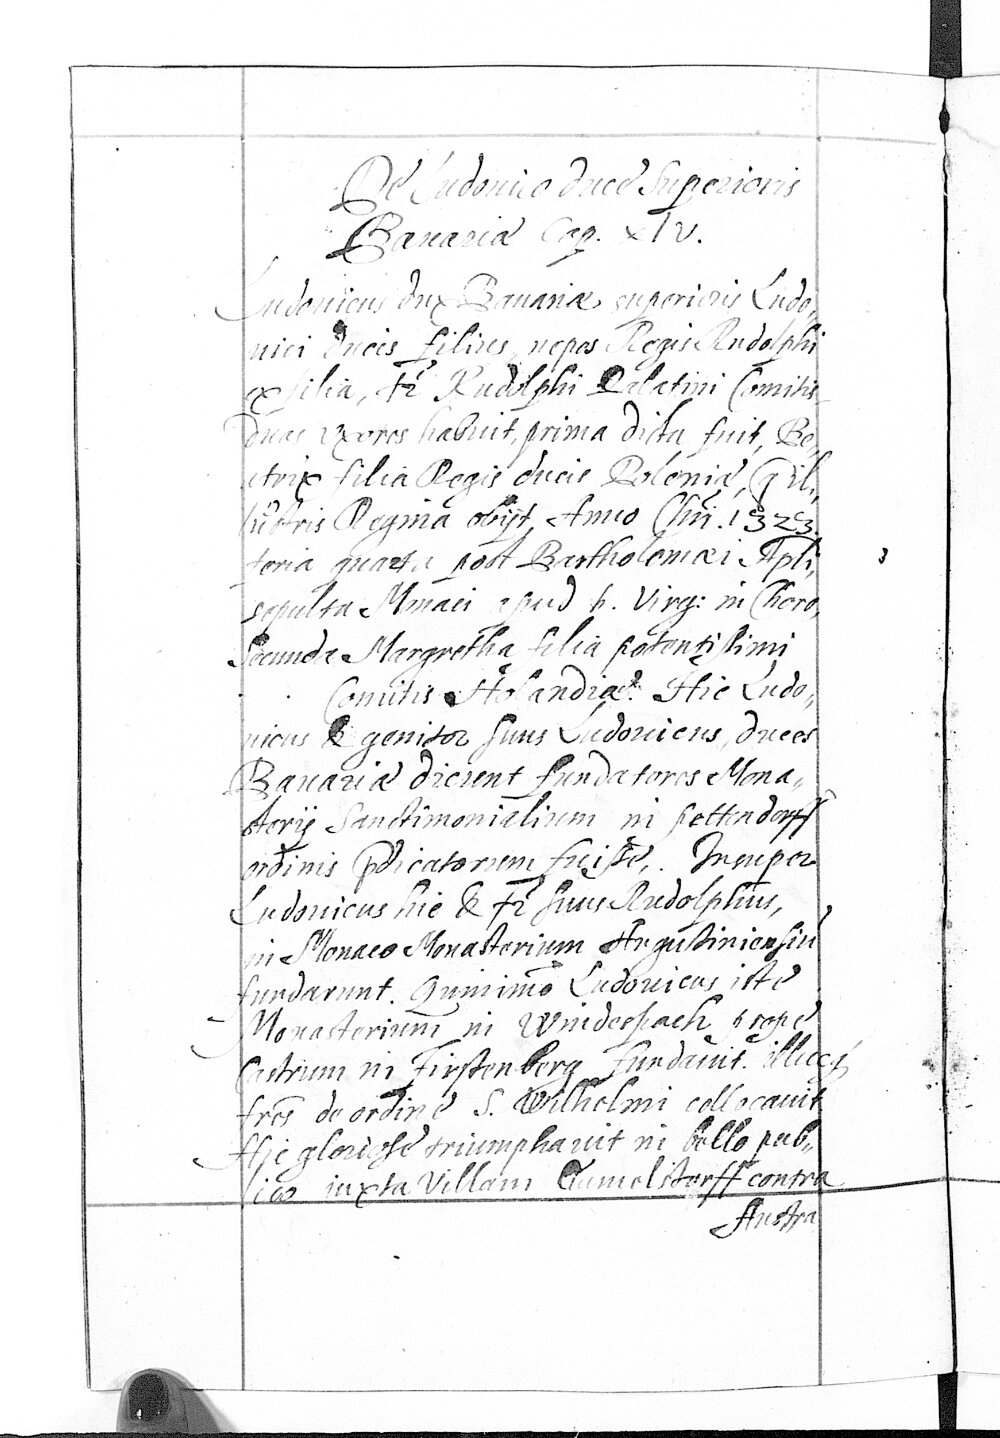 De Ludouico duce Superioris
Bauariæ Cap. xlv.
Ludouicus dux Bauariæ superioris Ludo,,
uici ducis filius, nepos Regis Rudolphi
ex filia, fr̃ Rudolphi Palatini Comitis
duas vxores habuit, prima dicta fuit, Be,,
atrix filia Regis ducis Poloniæ, q̃ il,,
lustris Regina obijt, Anno Chri̅. 1323.
feria quarta post Bartholomæi Apli,
sepulta Monaci apud b. Virg: in Choro,
Secunda Margretha filia potentissimi
Comitis Holandiæ. Hic Ludo,,
uicus & genitor suus Ludouicus, duces
Bauariæ dicunt fundatores Mona,,
sterij Sanctimonialium in pettendorff
ordinis p̃dicatorum fuisse,. Insuper
Ludouicus hic & fr̃ suus Rudolphus,
in Monaco Monasterium Augustiniensiu̅
fundarunt. Quinimo Ludouicus iste
Monasterium in prope
Castrum in Firstenberg fundauit. illucq̃
fres̃ de ordine S. Wilhelmi collocauit
Hic gloriose triumphauit in bello pub,,
lico iuxta Villam Gamelstorff contra
Austra